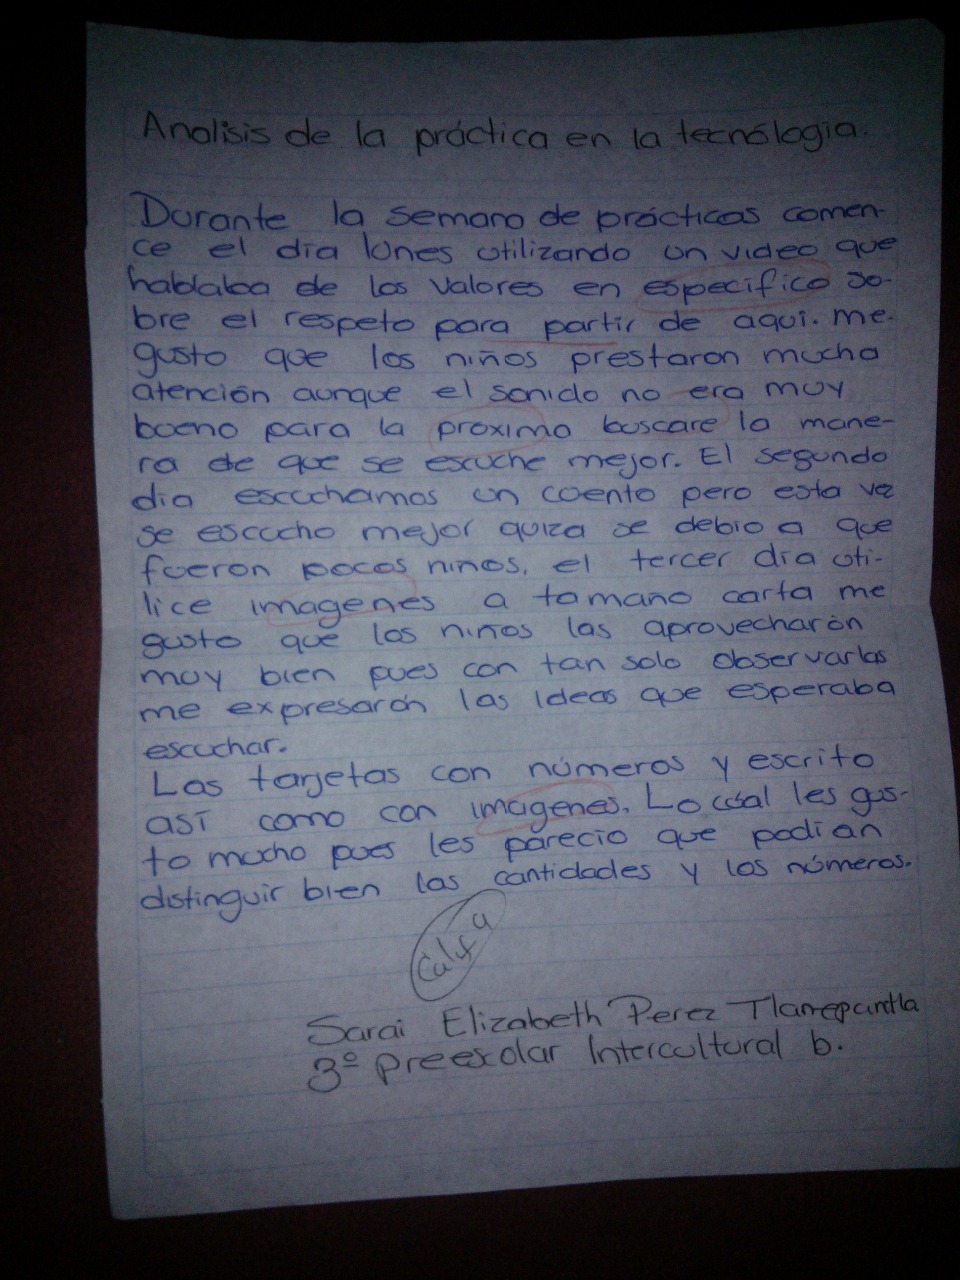 Analisis de la práctica en la tecnólogia.
Durante la semana de prácticas comen-
ce el día lunes utilizando un video que
hablaba de los valores en especifico so-
bre el respeto para partir de aqui. me
gusto que los niños prestaron mucha
atención aunque el sonido no era muy
bueno para la proximo buscare la mane-
ra de que se escuche mejor. El segundo
dia escuchamos un cuento pero esta vez
se escucho mejor quiza se debio a que
fueron pocos ninos, el tercer día uti-
lice imagenes a tamaño carta me
gusto que los niños las aprovecharón
muy bien pues con tan solo observarlas
me expresarón las ideas que esperaba
escuchar.
Las tarjetas con números y escrito
así como con imagenes. Lo cúal les gus-
to mucho pues les parecio que podían
distinguir bien las cantidades y los números.
Calif
Sarai Elizabeth Perez Tlamepantla
3º preescolar Intercultural b.